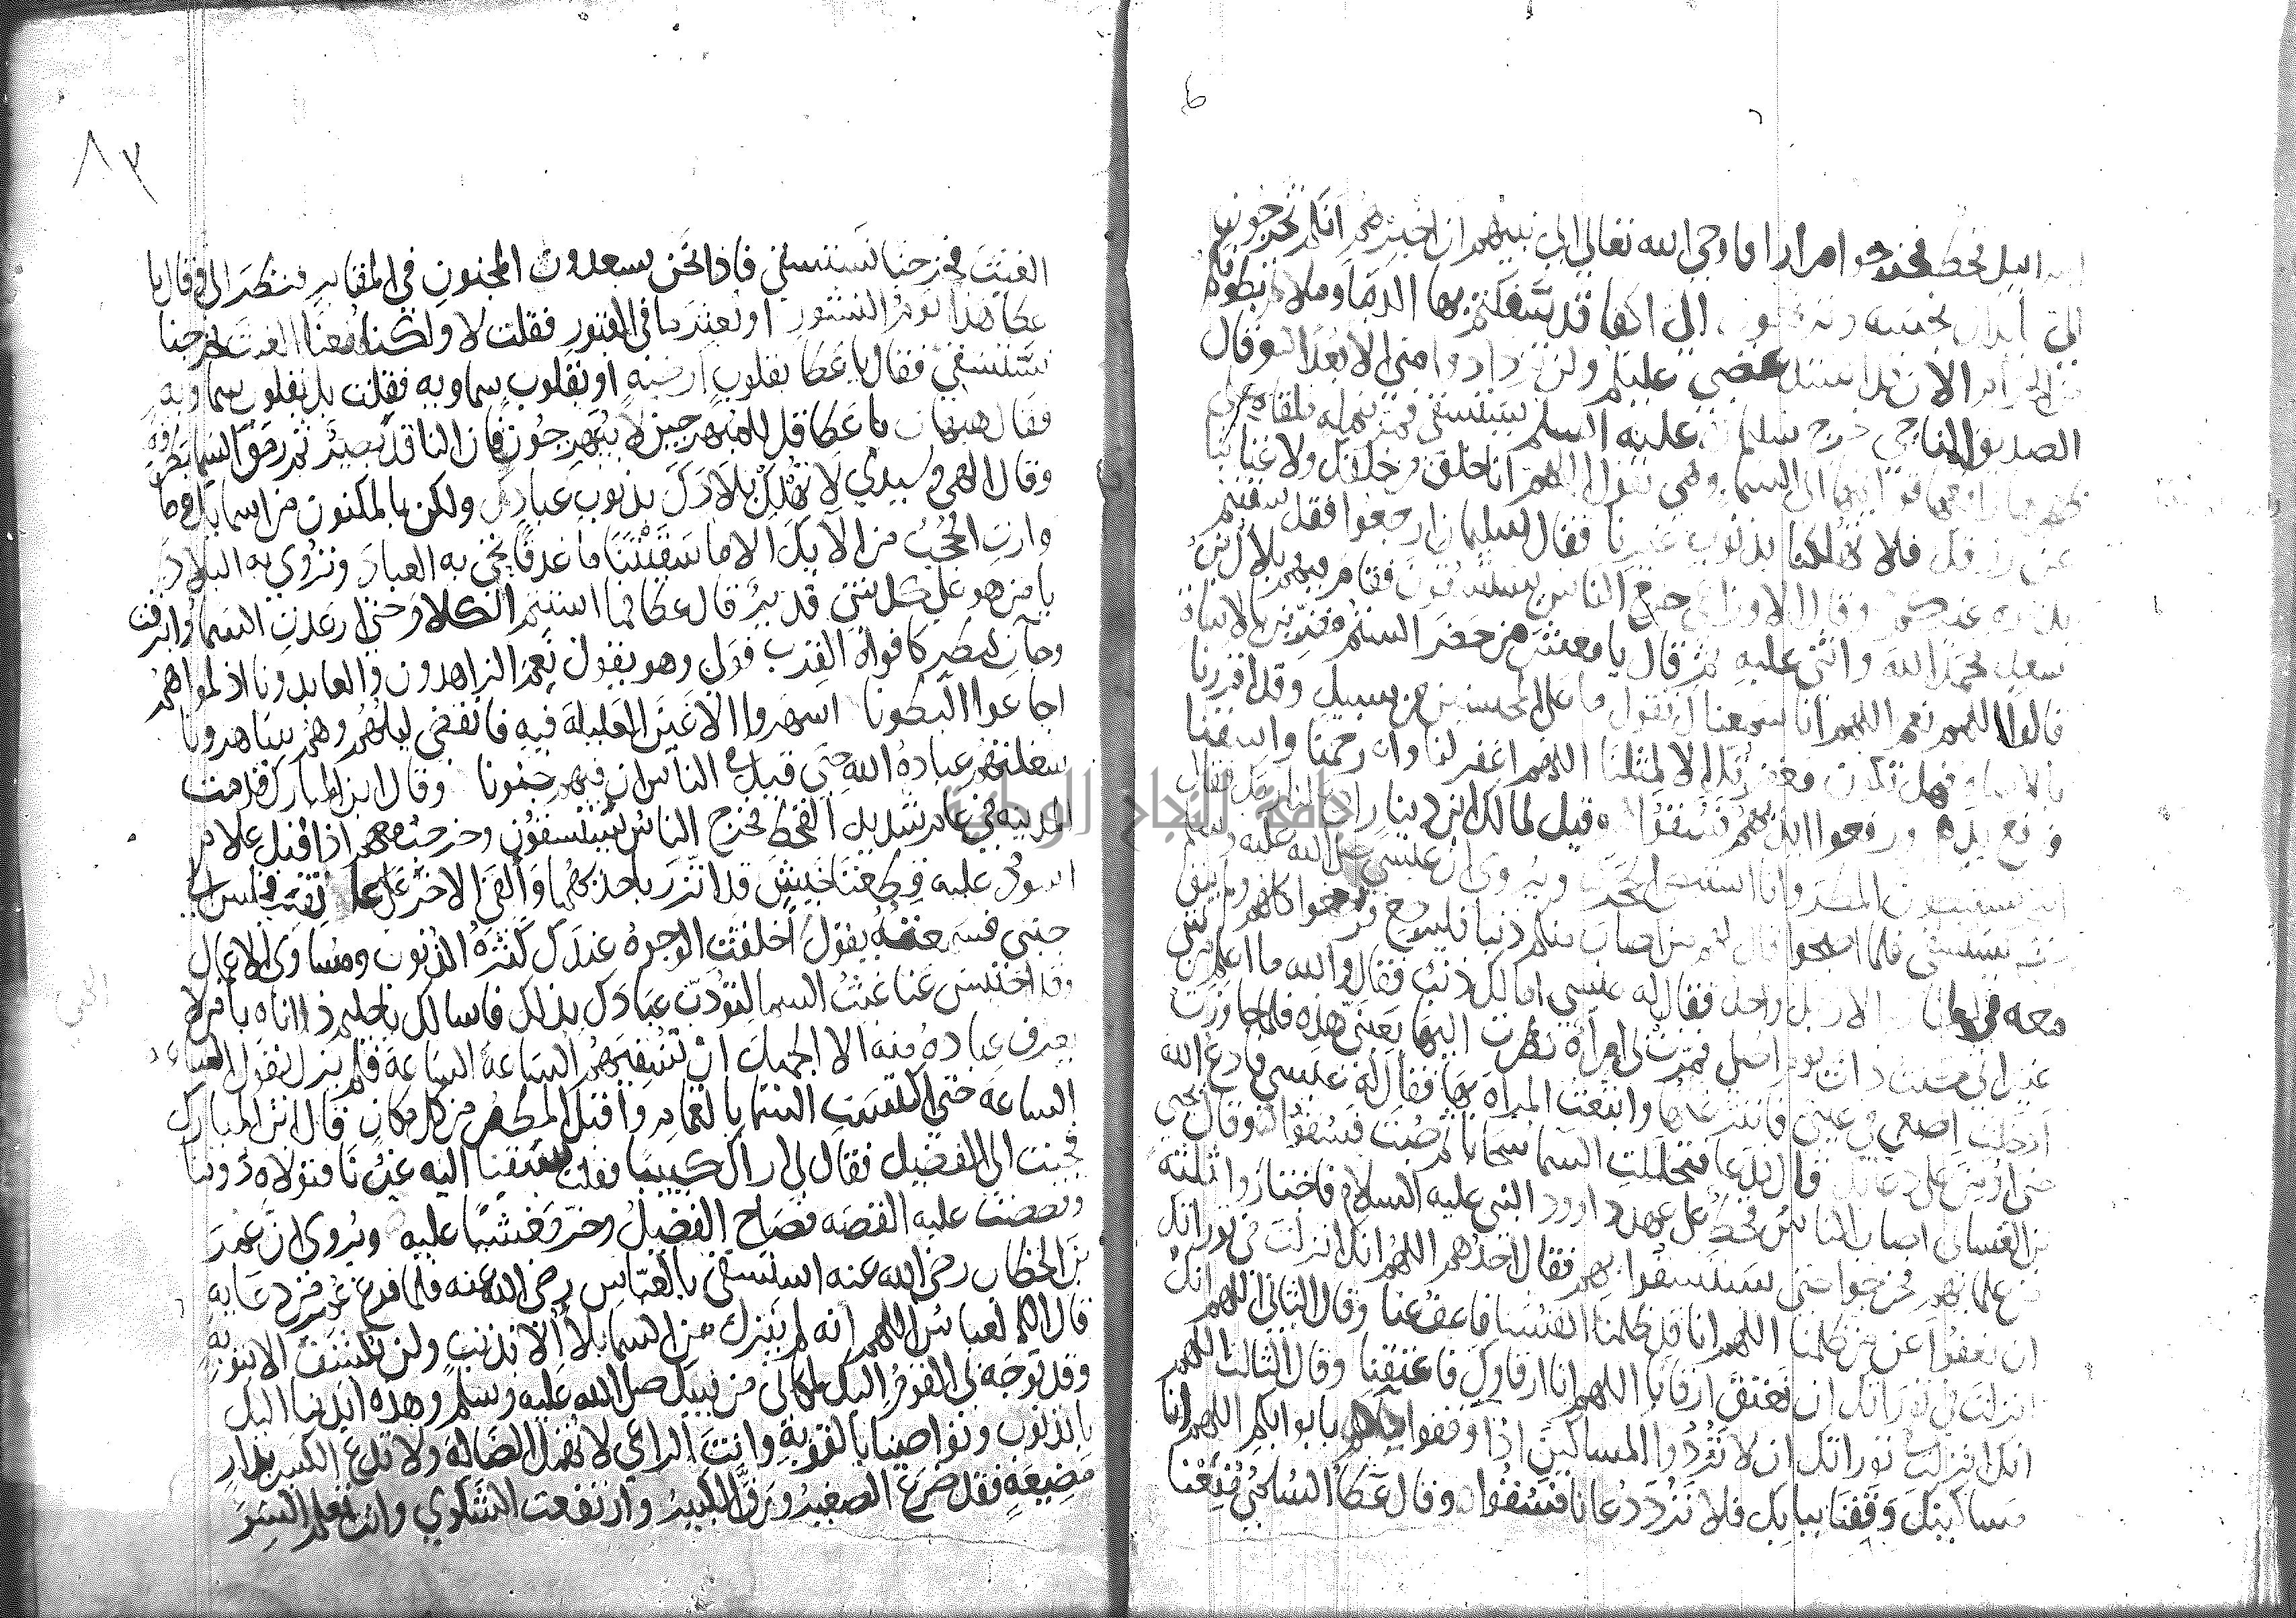 فخرجوا مرارا فاوحي الله تعالي الي نبيهم ان اخبرهم انكم تخرجون
الي ابدان نجسه وترفعون الي اكفا قد سفكتم بها الدما وملاتم بطونكم
من الحرام الان قد اشتد غضبي عليكم ولن تزدادوا مني الا بعدا وقال
الصديق الناجي خرج سليمان عليه السلم يستسقي فمر بنمله ملقاه علي
ظهرها رافعه قوايمها الي السما وهي تقول اللهم انا خلق من خلقك ولا غنا بنا
عن رزقك فلا تهلكنا بذنوب غيرنا فقال سليمان ارجعوا فقد سقيتم
بدعوه غيركم وقال الاوزاعي خرج الناس يستسقون فقام فيهم بلال بن
سعد فحمد الله واثني عليه ثم قال يا معشر من حضر الستم مقرين بالاساة
قالوا اللهم نعم اللهم انا سمعناك تقول ما علي المحسنين من سبيل وقد اقررنا
بالاساه فهل تكون مغفرتك الا لمثلنا اللهم اغفر لنا وارحمنا واسقنا
فرفع يديه ورفعوا ايديهم فسقوا وقيل لمالك ابن دينار ادع لنا ربك فقال
انتم تستبطون المطر وانا استبطي الحجر ويروي ان عيسي صلي الله عليه وسلم
خرج يستسقي فلما اصحروا قال لهم من اصاب منكم ذنبا فليرجع فرجعوا كلهم ولم يبق
معه في المفازه الا رجل واحد فقال له عيسي اما لك ذنب فقال والله ما اعلم من شي
غير اني كنت ذات يوم اصلي فمرت بي امراه فنظرت اليها بعيني هذه فلما جاوزت
ادخلت اصبعي في عيني فانتزعتها واتبعت المراه بها فقال له عيسي فادع الله
حتي اومن علي دعائك قال فدعا فتجللت السما سحابا ثم صبت فسقوا وقال يحيي
بن الغساني اصاب الناس قحط علي عهد داوود النبي عليه السلام فاختاروا ثلثه
من علمايهم فخرجوا حتي يستسقوا بهم فقال احدهم اللهم انك انزلت في توراتك
ان نعفوا عن من ظلمنا اللهم انا قد ظلمنا انفسنا فاعف عنا وقال الثاني اللهم انك
انزلت في توراتك ان نعتق ارقانا اللهم انا ارقاوك فاعتقنا وقال الثالث اللهم
انك انزلت في توراتك ان لا نرد المساكين اذا وقفوا بابوابكم اللهم انا
مساكينك وقفنا ببابك فلا ترد دعانا فسقوا وقال عطا السلمي منعنا
٨٣
الغيث فخرجنا نستسقي فاذا نحن بسعدون المجنون في المقابر فنظر الي وقال يا
عطا هذا يوم النشور او بعثر ما في القبور فقلت لا ولكنا منعنا الغيث فخرجنا
نستسقي فقال يا عطا بقلوب ارضيه او بقلوب سماويه فقلت بل بقلوب سماويه
فقال هيهات يا عطا قل للمتبهرجين لا يتبهرجون فان الناقد بصير ثم رمق السما بطرفه
وقال الهي وسيدي لا تهلك بلادك بذنوب عبادك ولكن بالمكنون من اسمايك وما
وارت الحجب من الايك الا ما سقيتنا ما غدقا تحيي به العباد وتروي به البلاد
يا من هو علي كل شي قدير قال عطا فما استتم الكلام حتي ارعدت السما وابرقت
وجات بمطر كافواه القرب فولي وهو يقول نعم الزاهدون والعابدونا اذ لمولاهم
اجاعوا البطونا اسهروا الاعين العليلة فيه فانقضي ليلهم وهم ساهرونا
شغلتهم عبادة الله حتي قيل في الناس ان فيهم جنونا وقال ابن المبارك قدمت
المدينه في عام شديد القحط فخرج الناس يستسقون وخرجت معهم اذ اقبل غلام
اسود عليه قطعتا خيش قد اتزر باحديهما والقي الاخري علي عاتقه فجلس الي
جنبي فسمعته يقول اخلقت الوجوه عندك كثرة الذنوب ومساوي الاعمال
وقد احتبس عنا غيث السما لتودب عبادك بذلك فاسالك يا حليم ذا اناه يا من لا
يعرف عباده منه الا الجميل ان تسقيهم الساعة الساعة فلم يزل يقول الساعه
الساعه حتي اكتست السما بالغمام واقبل المطر من كل مكان قال ابن المبارك
فجيت الي الفضيل فقال لي اراك كييبا فقلت سبقنا اليه غيرنا فتولاه دوننا
وقصصت عليه القصه فصاح الفضيل وخر مغشيا عليه ويروي ان عمر
بن الخطاب رضي الله عنه استسقي بالعباس رضي الله عنه فلما فرغ عمر من دعايه
قال العباس اللهم انه لم ينزل من السما بلا الا بذنب ولن يكشف الا بتوبه
وقد توجه بي القوم اليك لمكاني من نبيك صلي الله عليه وسلم وهذه ايدينا اليك
بالذنوب ونواصينا بالتوبة وانت الراعي لا تهمل الضاله ولا تدع الكسير بدار
مضيعة فقد ضرع الصغير ورق الكبير وارتفعت الشكوي وانت تعلم السر
جامعة النجاح الوطنية